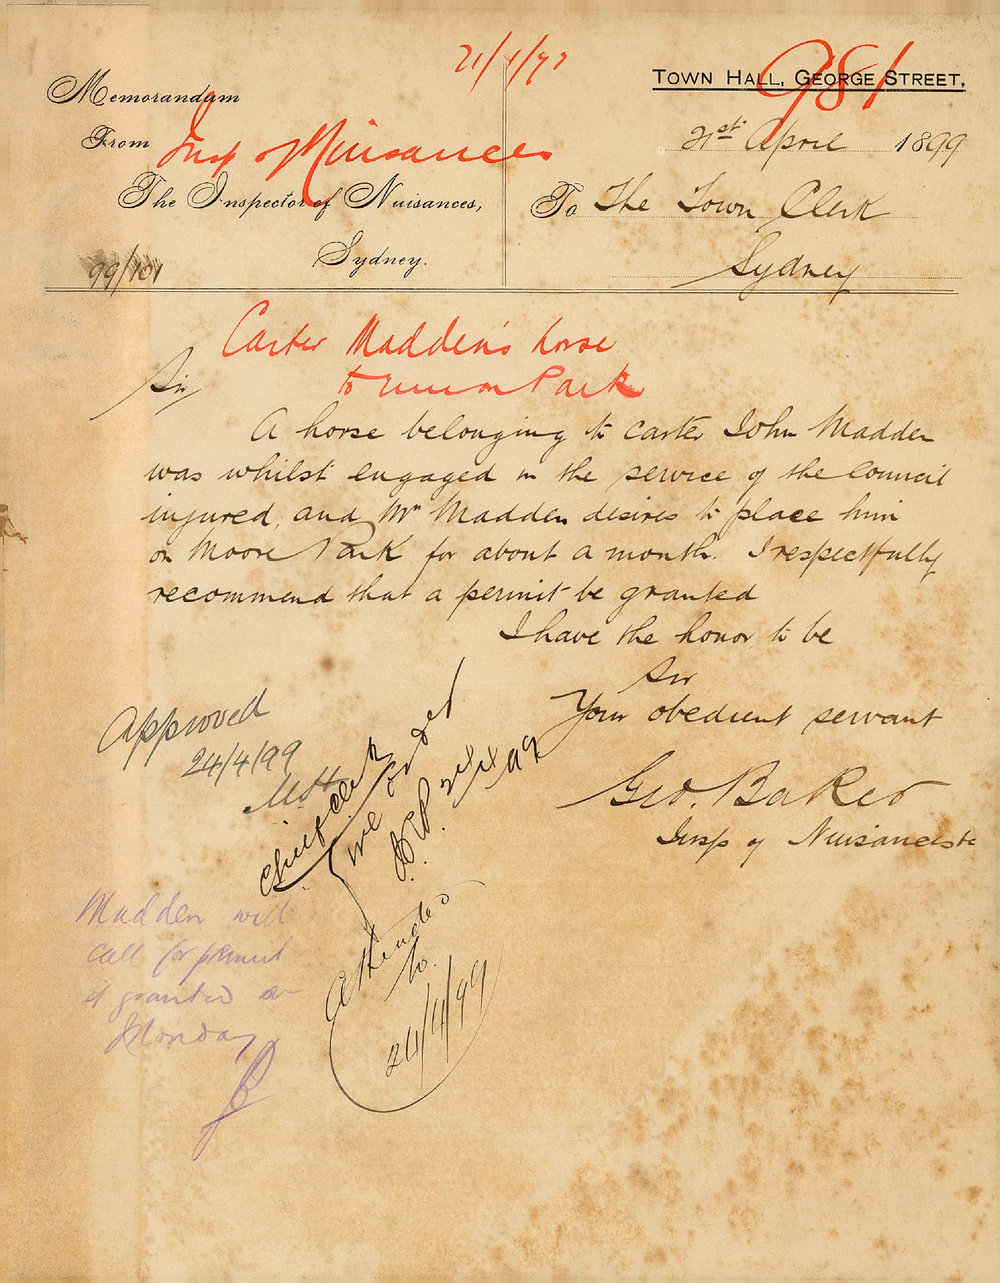 21/4/99
981
Memorandum
From
Insp of Nuisances
The Inspector of Nuisances,
Sydney.
99/101
TOWN HALL, GEORGE STREET,
21st April 1899
To The Town Clerk
Sydney
Carter Madden's horse
to run on Park
Sir
A horse belonging to carter John Madden
was whilst engaged in the service of the Council
injured, and Mr Madden desires to place him
on Moore Park for about a month. I respectfully
recommend that a permit be granted
I have the honor to be
Sir
Your obedient servant
Geo. Baker
Insp of Nuisances &c
Approved
24/4/99
Chief clerk
order
24/4/99
Attended
to.
24/4/99
Madden will
call for permit
if granted on
Monday